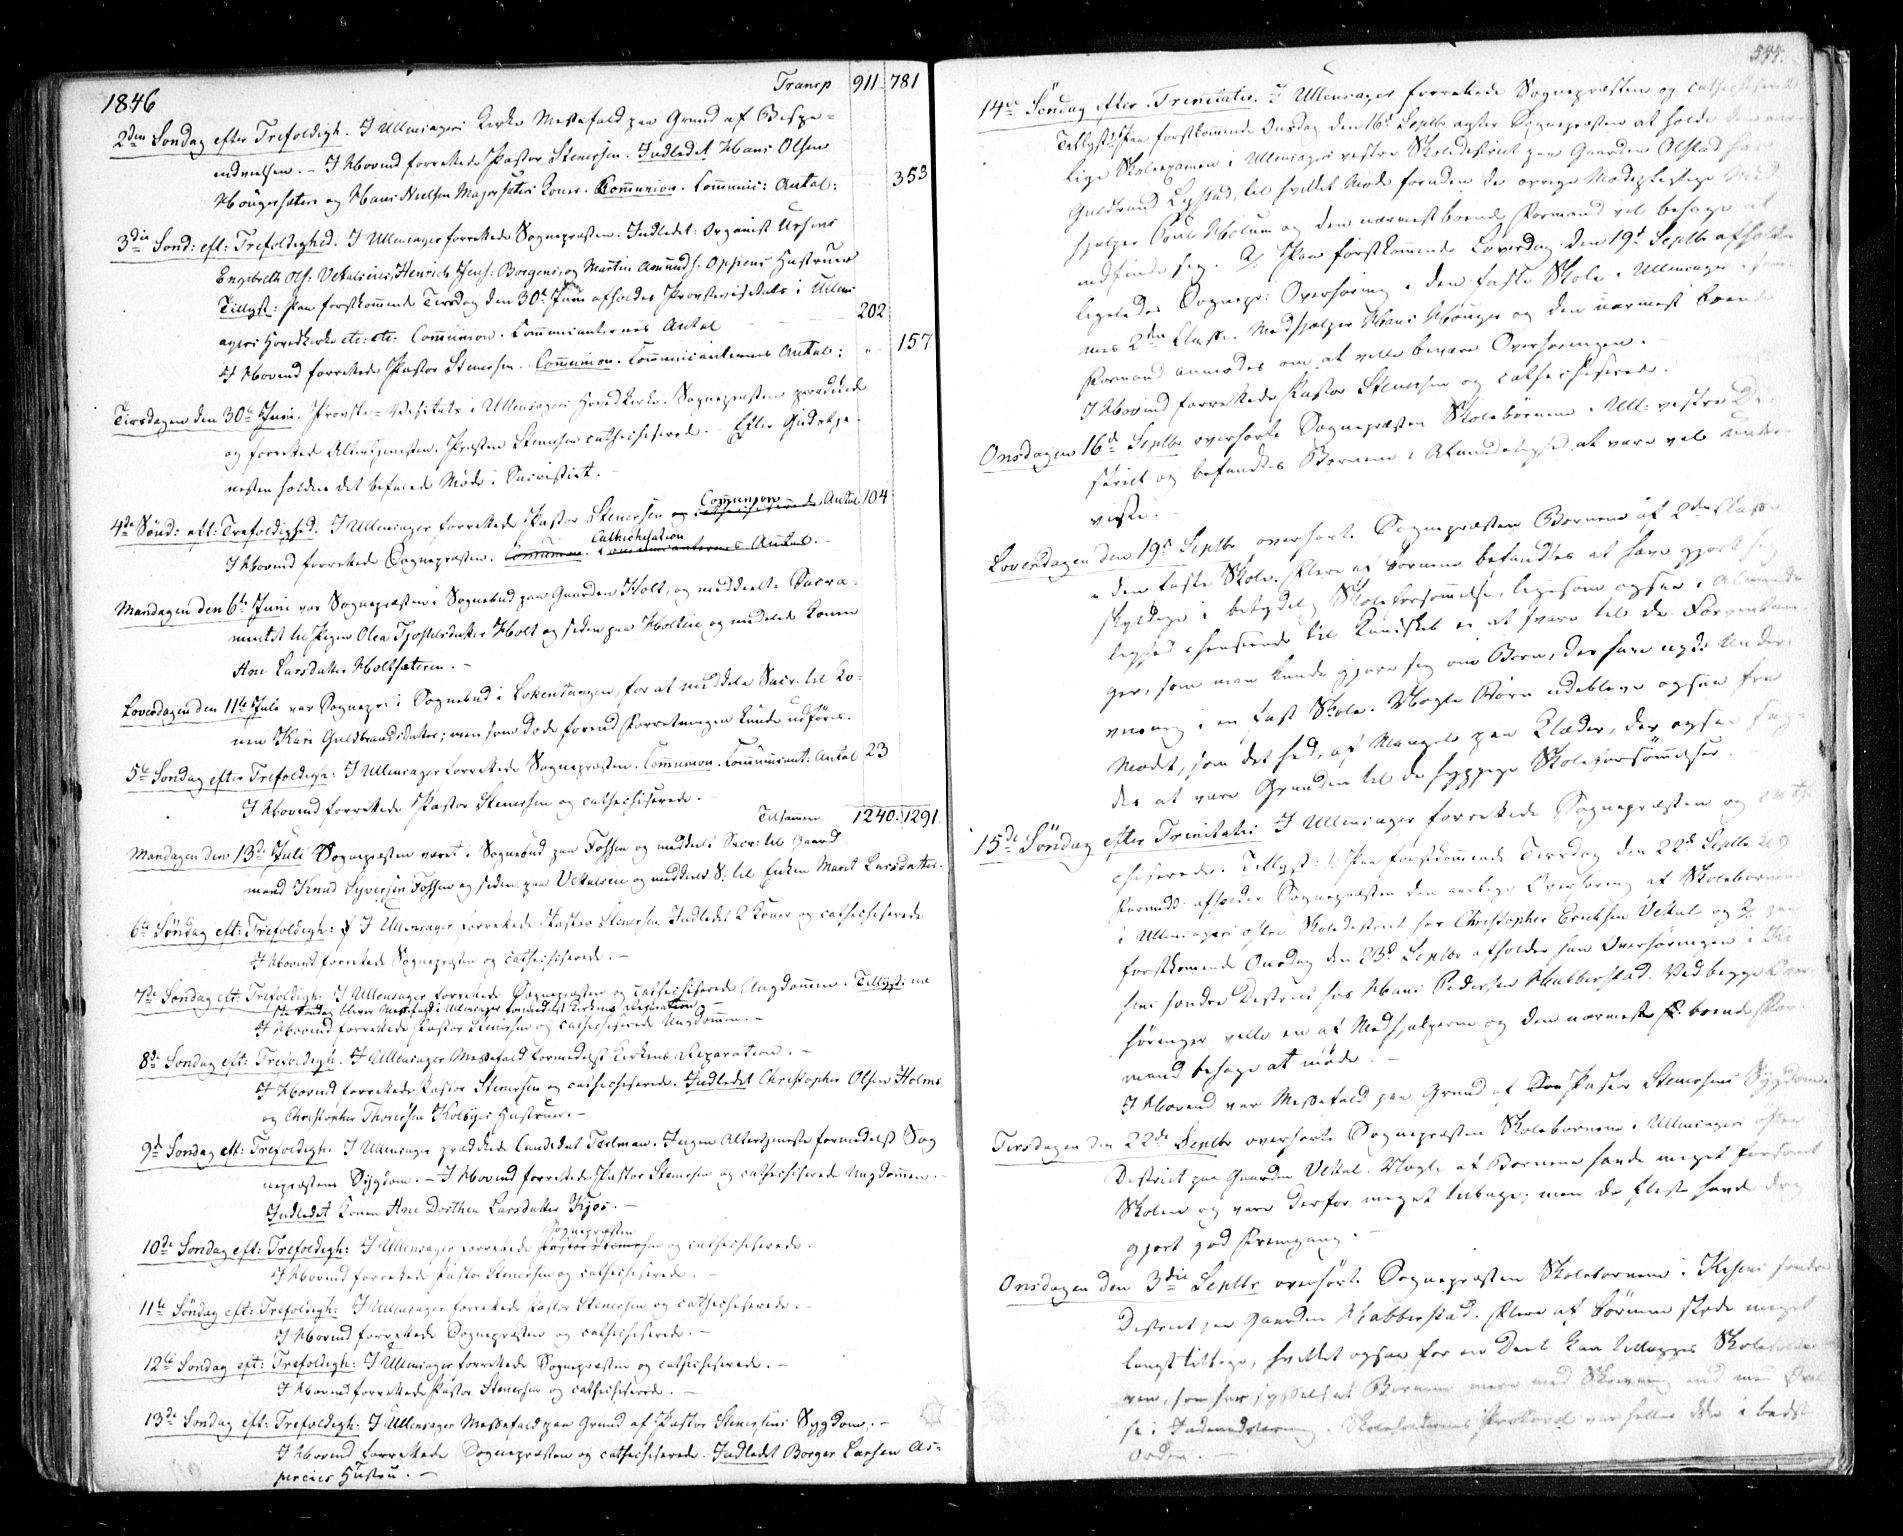 1846 Transp 911 781
2den Søndag efter Trefoldigh. I Ullensagers Kirke Messefald paa Grund af Bispe-
indvielsen. - I Hovind forrettede Pastor Stenersen. Indledet Hans Olsen
Hougersæter og Hans Nielsen Majersæters Koner. Communion. Communic: Antal: 353
3die Sønd: eft: Trefoldighed. I Ullensager forrettede Sognepræsten. Indledet: Organist
Engebreth Ols: Henrich Jens: Borgens, og Martin Amunds: Hustruer
Tillyst: Paa førstkommende Tirsdag den 30te Juni afholdes Provstevisitats i Ullens-
agers Hovedkirke etc: etc: Communion. Communicanternes Antal 202
I Hovind forrettede Pastor Stenersen. Communion. Communicanternes Antal: " 157
Tirsdagen den 30te Juni. Provste-Visitats i Ullensagers Hovedkirke. Sognepræsten prædikede
og forrettede Altertjenesten. Præsten Stenersen cathechiserede. - Efter Gudstje-
nesten holdtes det befalede Møde i Sacristiet. -
4de Sønd: eft: Trefoldighed. I Ullensager forrettede Pastor Stenersen og cathechiserede Communion Antal 104
I Hovind forrettede Sognepræsten. Communion. Communicanternes Antal. - Cathechisation
Mandagen den 6te Juni var Sognepræsten i Sognebud paa Gaarden Holt, og meddeelte Sacra-
mentet til Pigen Olea Tjostelsdatter Holt og siden paa Holteie og meddelede Konen
Ane Larsdatter Holtsæteren. -
Løverdagen den 11te Juli var Sognepr: i Sognebud i Løkentangen, for at meddele Sacr. til Ko-
nen Kari Guldbrandsdatter; men som døde forend Forretningen kunde udføres.
5te Søndag efter Trefoldigh: I Ullensager forrettede Sognepræsten. Communion. Communicant: Antal 23
I Hovind forrettede Pastor Stenersen og cathechiserede. -
Tilsammen 1240. 1291.
Mandagen den 13de Juli Sognepræsten været i Sognebud paa Fossen og meddelt Sacr: til Gaard-
mand Knud Syversen Fossen og siden paa og meddelt S: til Enken Maret Larsdatter.
6te Søndag eft: Trefoldigh: I Ullensager forrettede Pastor Stenersen Indledet 2 Koner og cathechiserede
I Hovind forrettede Sognepræsten og cathechiserede. -
7de Søndag eft: Trefoldigh: I Ullensager forrettede Sognepræsten og cathechiserede Ungdommen. Tillyst: næ-
ste Søndag bliver Messefald i Ullensager formedelst Kirkens Reparation -
I Hovind forrettede Pastor Stenersen og cathechiserede Ungdommen. -
8de Søndag eft: Trefoldigh. I Ullensager Messefald formedelst Kirkens Reparation. -
I Hovind forrettede Pastor Stenersen og cathechiserede. Indledet Christopher Olsen Holms
og Christopher Thoresen Kolbyes Hustruer. -
9de Søndag eft: Trefoldigh. I Ullensager prædikede Candidat Teilman. Ingen Altertjeneste formedelst Sog-
nepræstens Sygdom. - I Hovind forrettede Pastor Stenersen og cathechiserede Ungdommen. -
Indledet Konen Ane Dorthea Larsdatter Kjos. -
10de Søndag eft: Trefoldigh: I Ullensager forrettede Pastor Stenersen Sognepræsten og cathechiserede.
I Hovind forrettede Pastor Stenersen og cathechiserede. -
11te Søndag eft: Trefoldigh: I Ullensager forrettede Pastor Stenersen og cathechiserede. -
I Hovind forrettede Sognepræsten og cathechiserede. -
12te Søndag eft: Trefoldigh: I Ullensager forrettede Sognepræsten og cathechiserede. -
I Hovind forrettede Pastor Stenersen og cathechiserede. -
13de Søndag eft: Trefoldigh: I Ullensager Messefald paa Grund af Pastor Stenersens Sygdom. -
I Hovind forrettede Sognepræsten og cathechiserede. Indledet Borger Larsen As-
Hustru. -
544.
14de Søndag efter Trinitatis. I Ullensager forrettede Sognepræsten og cathechiserede
Tillyst: Paa førstkommende Onsdag den 16de Septbr agter Sognepræsten at holde den aar-
lige Skoleexamen i Ullensagers vestre Skoledistrict paa Gaarden Olstad hos
Guldbrand Lystad, til hvilket Møde foruden de øvrige Mødepligtige Med-
hjelper Poul Holum og den nærmest boende Formand vil behage at
indfinde sig. 2/ Paa førstkommende Løverdag den 19de Septbr afholder
ligeledes Sognepr: Overhøring i den faste Skole i Ullensager
2den Classe. Medhjælper Hans Houger og den nærmest boende
Formand anmodes om at ville bevære Overhøringen. -
I Hovind forrettede Pastor Stenersen og cathechiserede.
Onsdagen 16de Septbr overhørte Sognepræsten Skolebørnene i Ull: vestre Di-
strict og befandtes Børnene i Almindelighed at være vel under-
viste. -
Løverdagen den 19de Septbr overhørte Sognepræsten Børnene af 2den Classe
i den faste Skole. Flere af Børnene befandtes at have gjort sig
skyldige i betydelig Skoleforsømmelse, ligesom ogsaa i Alminde-
lighed henseende til Kundskab ei at svare til de Forventnin-
ger, som man kunde gjøre sig om Børn, der have nydt Under-
visning i en fast Skole. Nogle Børn udebleve ogsaa fra
Mødet, som det hed, af Mangel paa Klæder, der ogsaa sag-
des at være Grunden til de hyppige Skoleforsømmelser.
15de Søndag efter Trinitatis I Ullensager forrettede Sognepræsten og cathe-
chiserede. Tillyst: 1. Paa førstkommende Tirsdag den 22de Septbr
Formidd: afholder Sognepræsten den aarlige Overhøring af Skolebørnene
i Ullensagers østre Skoledistrict hos Christopher Eriksen og 2/ paa
førstkommende Onsdag den 23de Septbr afholder han Overhøringen i Ki-
sens søndre District hos Hans Pedersen Habberstad. Ved begge Over-
høringer ville en af Medhjælperne og den nærmeste boende For-
mand behage at møde. -
I Hovind var Messefald paa Grund af Pastor Stenersens Sygdom.
Tirsdagen den 22de Septbr overhørte Sognepræsten Skolebørnene i Ullensagers østre
District paa Gaarden. Nogle af Børnene havde meget forsømt
Skolen og vare derfor meget tilbage; men de fleste havde dog
gjort god Fremgang. -
Onsdagen den 3die Septbr overhørte Sognepræsten Skolebørnene i Kisens søndre
District paa Gaarden Habberstad. Flere af Børnene stode meget
langt tilbage, hvilket ogsaa for en Deel kan tillægges Skolehol-
eren, som har sysselsat Børnene mere med Skrivning end med
se i Indenadslæsning. Skoleholderens Protocol var heller ikke i bedste
Orden. -